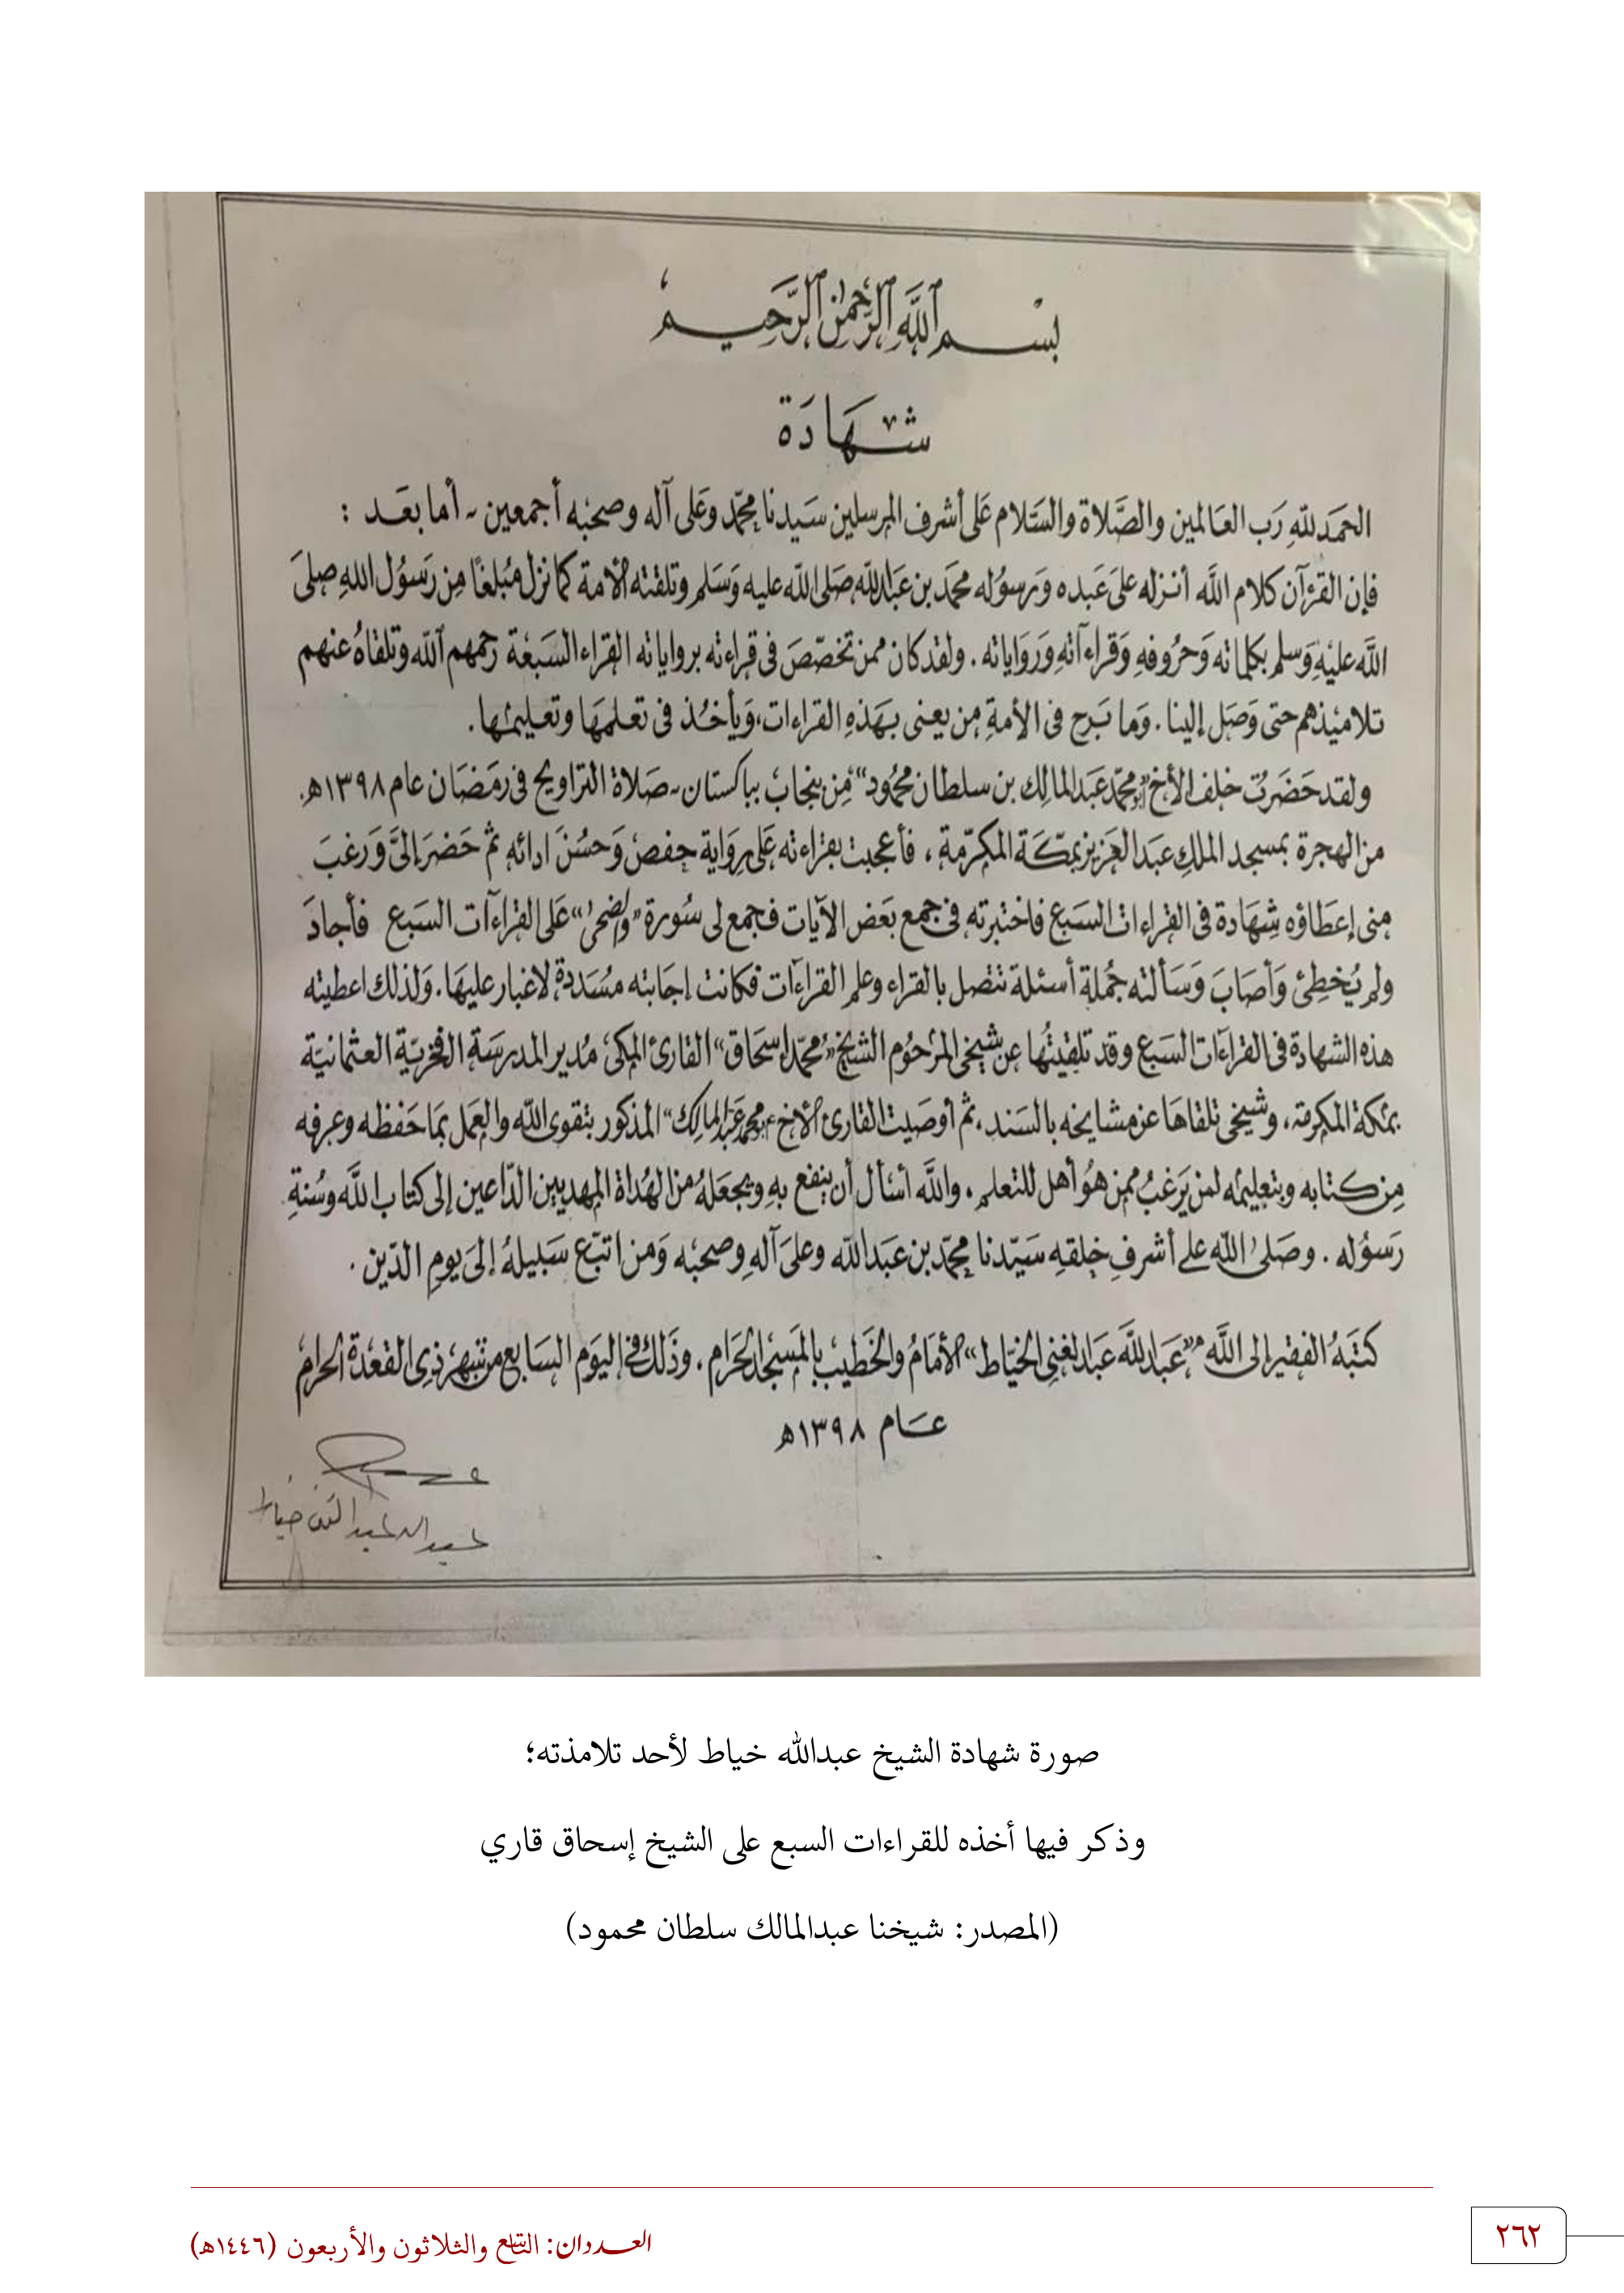 بسم الله الرحمن الرحيم
شهادة
الحمد لله رب العالمين والصلاة والسلام على أشرف المرسلين سيدنا محمد وعلى آله وصحبه أجمعين - أما بعد :
فإن القرآن كلام الله أنزله على عبده ورسوله محمد بن عبدالله صلى الله عليه وسلم وتلقته الأمة كما نزل مبلغا من رسول الله صلى
الله عليه وسلم بكلماته وحروفه وقراءاته ورواياته . ولقد كان ممن تخصص في قراءته برواياته القراء السبعة رحمهم الله وتلقاه عنهم
تلاميذهم حتى وصل إلينا . وما برح في الأمة من يعنى بهذه القراءات، ويأخذ في تعلمها وتعليمها .
ولقد حضرت خلف الأخ "محمد عبدالمالك بن سلطان محمود" من بنجاب بباكستان - صلاة التراويح في رمضان عام ١٣٩٨هـ.
من الهجرة بمسجد الملك عبدالعزيز بمكة المكرمة ، فأعجبت بقراءته على رواية حفص وحسن ادائه ثم حضر إلي ورغب
مني إعطاؤه شهادة في القراءات السبع فاختبرته في جمع بعض الآيات فجمع لي سورة "والضحى" على القراءات السبع فأجاد
ولم يخطئ وأصاب وسألته جملة أسئلة تتصل بالقراء وعلم القراءات فكانت إجابته مسددة لا غبار عليها. ولذلك اعطيته
هذه الشهادة في القراءات السبع وقد تلقيتها عن شيخي المرحوم الشيخ "محمد إسحاق" القارئ المكي مدير المدرسة الفخرية العثمانية
بمكة المكرمة ، وشيخي تلقاها عن مشايخه بالسند ، ثم أوصيت القارئ الأخ "محمد عبدالمالك" المذكور بتقوى الله والعمل بما حفظه وعرفه
من كتابه وبتعليمه لمن يرغب ممن هو أهل للتعلم ، والله أسأل أن ينفع به ويجعله من الهداة المهديين الداعين إلى كتاب الله وسنة
رسوله . وصلى الله على أشرف خلقه سيدنا محمد بن عبدالله وعلى آله وصحبه ومن اتبع سبيله إلى يوم الدين .
كتبه الفقير إلى الله "عبدالله عبدالغني الخياط" الأمام والخطيب بالمسجد الحرام ، وذلك في اليوم السابع من شهر ذي القعدة الحرام
عام ١٣٩٨هـ
عبدالله عبدالغني خياط
صورة شهادة الشيخ عبدالله خياط لأحد تلامذته؛
وذكر فيها أخذه للقراءات السبع على الشيخ إسحاق قاري
(المصدر: شيخنا عبدالمالك سلطان محمود)
العددان: التاسع والثلاثون والأربعون (١٤٤٦هـ)
٢٦٢